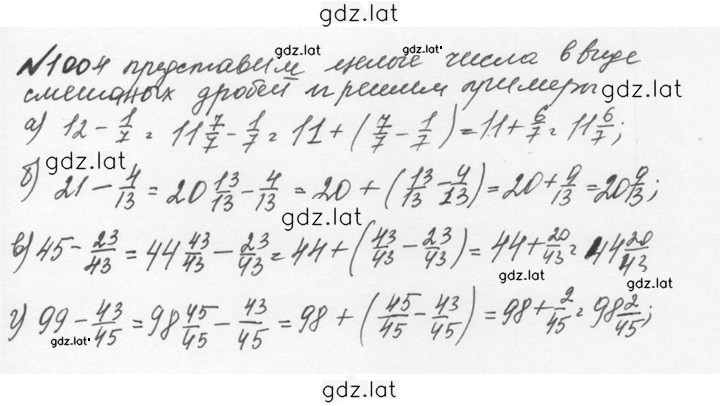 gdz.lat
№1004 представим целые числа в виде
gdz.lat gdz.lat
смешаных дробей и решим примеры
gdz.lat
а) 12 - 1/7 = 11 7/7 - 1/7 = 11 + (7/7 - 1/7) = 11 + 6/7 = 11 6/7;
gdz.lat
б) 21 - 4/13 = 20 13/13 - 4/13 = 20 + (13/13 - 4/13) = 20 + 9/13 = 20 9/13;
gdz.lat
в) 45 - 23/43 = 44 43/43 - 23/43 = 44 + (43/43 - 23/43) = 44 + 20/43 = 44 20/43
gdz.lat
г) 99 - 43/45 = 98 45/45 - 43/45 = 98 + (45/45 - 43/45) = 98 + 2/45 = 98 2/45;
gdz.lat gdz.lat
gdz.lat